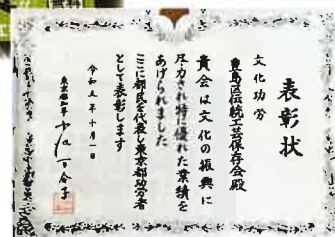 表彰状
文化功労
豊島区伝統工芸保存会殿
貴会は文化の振興に
尽力され特に優れた業績を
あげられました
ここに都民を代表し東京都功労者
として表彰します
令和五年十月一日
東京都知事 小池百合子